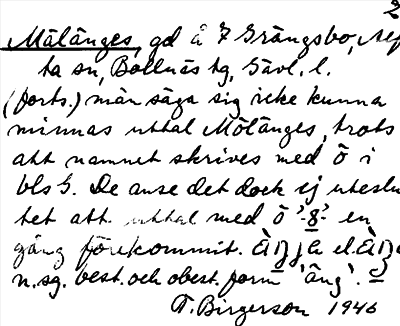 2
Mälänges, gd å 7 Grängsbo, Alf
ta sn, Bollnäs tg, Gävl. l.
(forts.) män säga sig icke kunna
minnas uttal Mölänges, trots
att namnet skrives med ö i
bls 5. De anse det dock ej uteslu
tet att uttal med ö -8- en
gång förekommit. el.
n.sg. best. och obest. form 'äng'.
T. Birgerson 1946